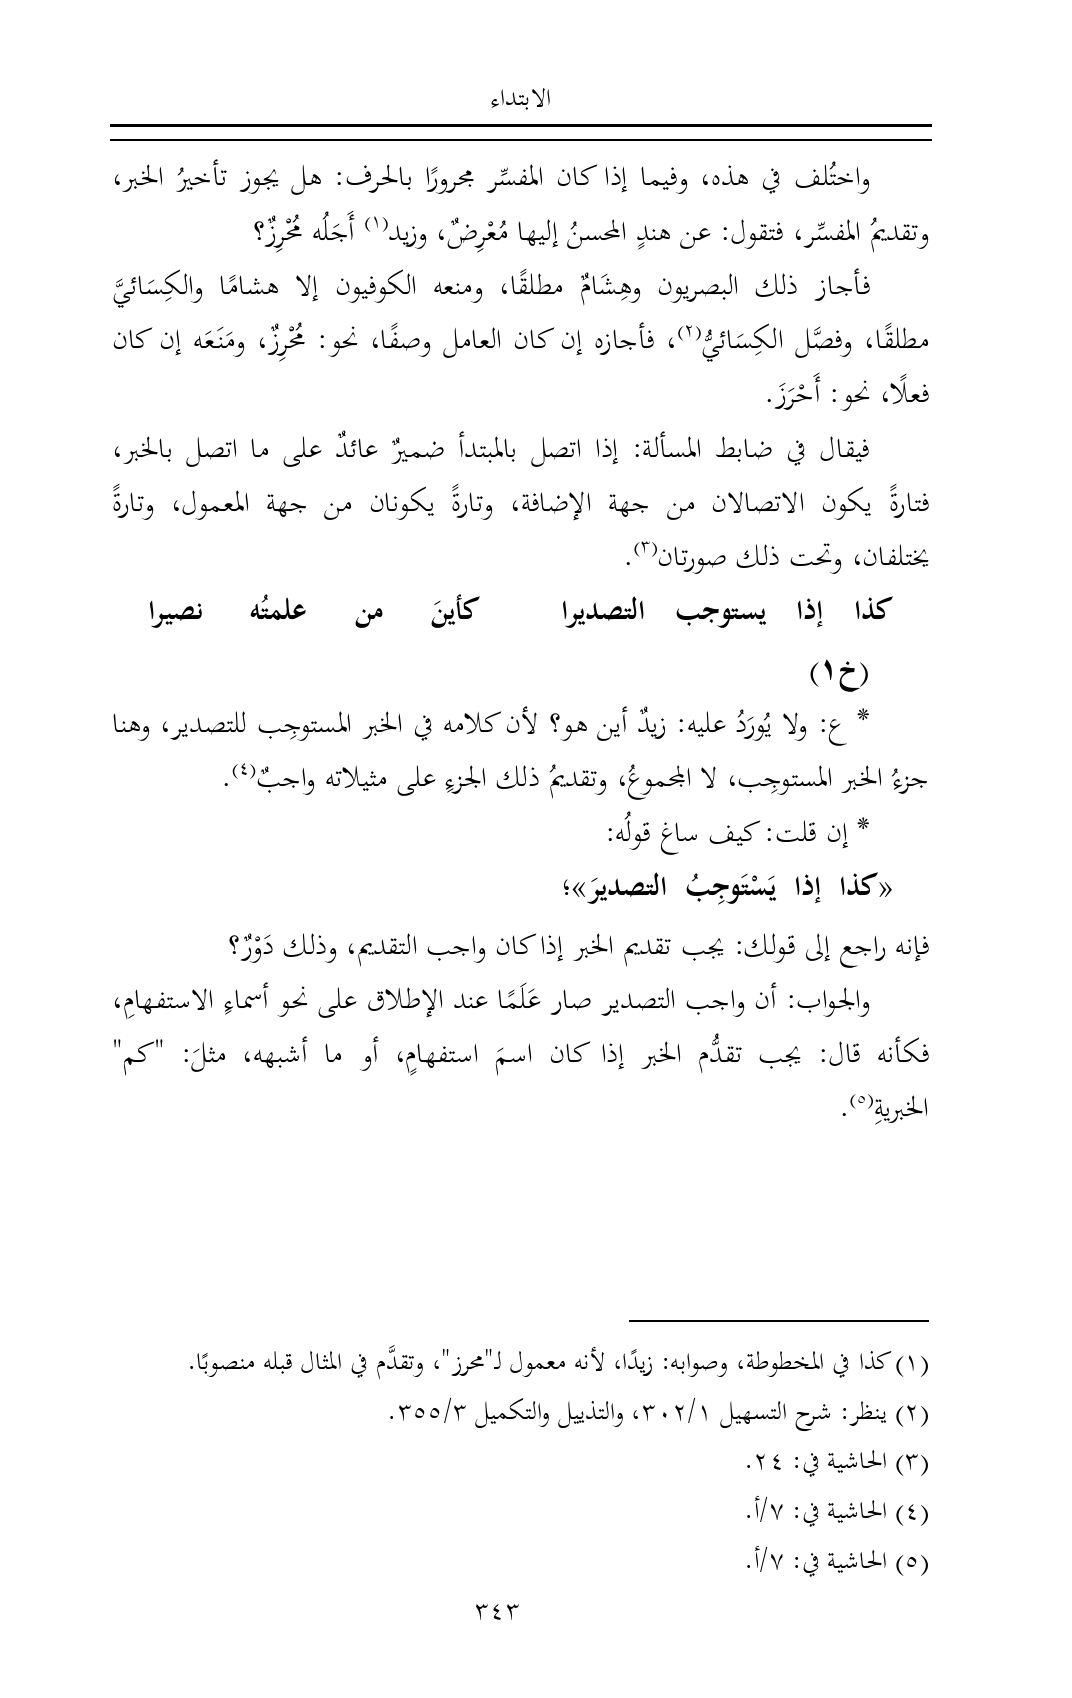 الابتداء
واختُلف في هذه، وفيما إذا كان المفسِّر مجرورًا بالحرف: هل يجوز تأخيرُ الخبر،
وتقديمُ المفسِّر، فتقول: عن هندٍ المحسنُ إليها مُعْرِضٌ، وزيد(١) أَجَلُه مُحْرِزٌ؟
فأجاز ذلك البصريون وهِشَامٌ مطلقًا، ومنعه الكوفيون إلا هشامًا والكِسَائيَّ
مطلقًا، وفصَّل الكِسَائيُّ(٢)، فأجازه إن كان العامل وصفًا، نحو: مُحْرِزٌ، ومَنَعَه إن كان
فعلًا، نحو: أَحْرَزَ.
فيقال في ضابط المسألة: إذا اتصل بالمبتدأ ضميرٌ عائدٌ على ما اتصل بالخبر،
فتارةً يكون الاتصالان من جهة الإضافة، وتارةً يكونان من جهة المعمول، وتارةً
يختلفان، وتحت ذلك صورتان(٣).
كذا إذا يستوجب التصديرا كأينَ من علمتُه نصيرا
(خ١)
* ع: ولا يُورَدُ عليه: زيدٌ أين هو؟ لأن كلامه في الخبر المستوجِب للتصدير، وهنا
جزءُ الخبر المستوجِب، لا المجموعُ، وتقديمُ ذلك الجزءِ على مثيلاته واجبٌ(٤).
* إن قلت: كيف ساغ قولُه:
«كذا إذا يَسْتَوجِبُ التصديرَ»؛
فإنه راجع إلى قولك: يجب تقديم الخبر إذا كان واجب التقديم، وذلك دَوْرٌ؟
والجواب: أن واجب التصدير صار عَلَمًا عند الإطلاق على نحو أسماءِ الاستفهامِ،
فكأنه قال: يجب تقدُّم الخبر إذا كان اسمَ استفهامٍ، أو ما أشبهه، مثلَ: "كم"
الخبريةِ(٥).
(١) كذا في المخطوطة، وصوابه: زيدًا، لأنه معمول لـ"محرز"، وتقدَّم في المثال قبله منصوبًا.
(٢) ينظر: شرح التسهيل ٣٠٢/١، والتذييل والتكميل ٣٥٥/٣.
(٣) الحاشية في: ٢٤.
(٤) الحاشية في: ٧/أ.
(٥) الحاشية في: ٧/أ.
٣٤٣